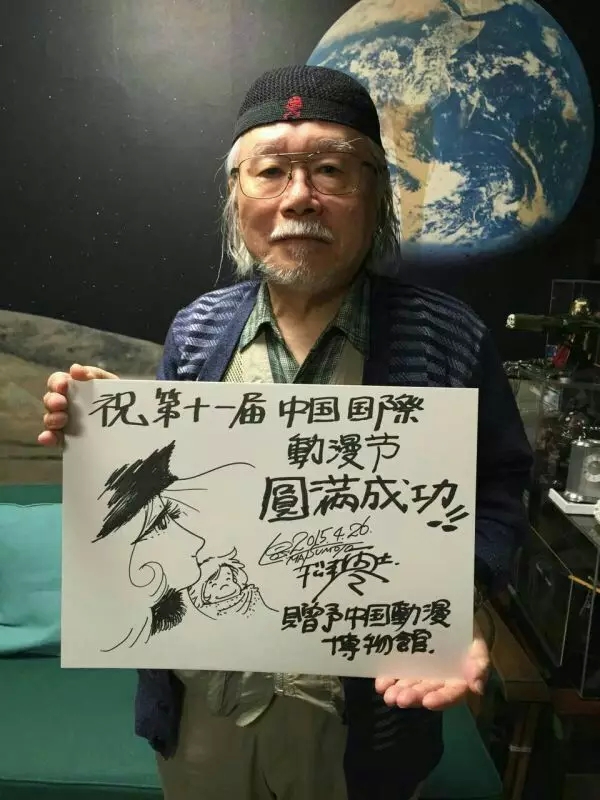 祝第十一届中国国際
動漫节
圓満成功!!
2015.4.26.
MATSUMOTO
松本零士.
贈予中国動漫
博物館.